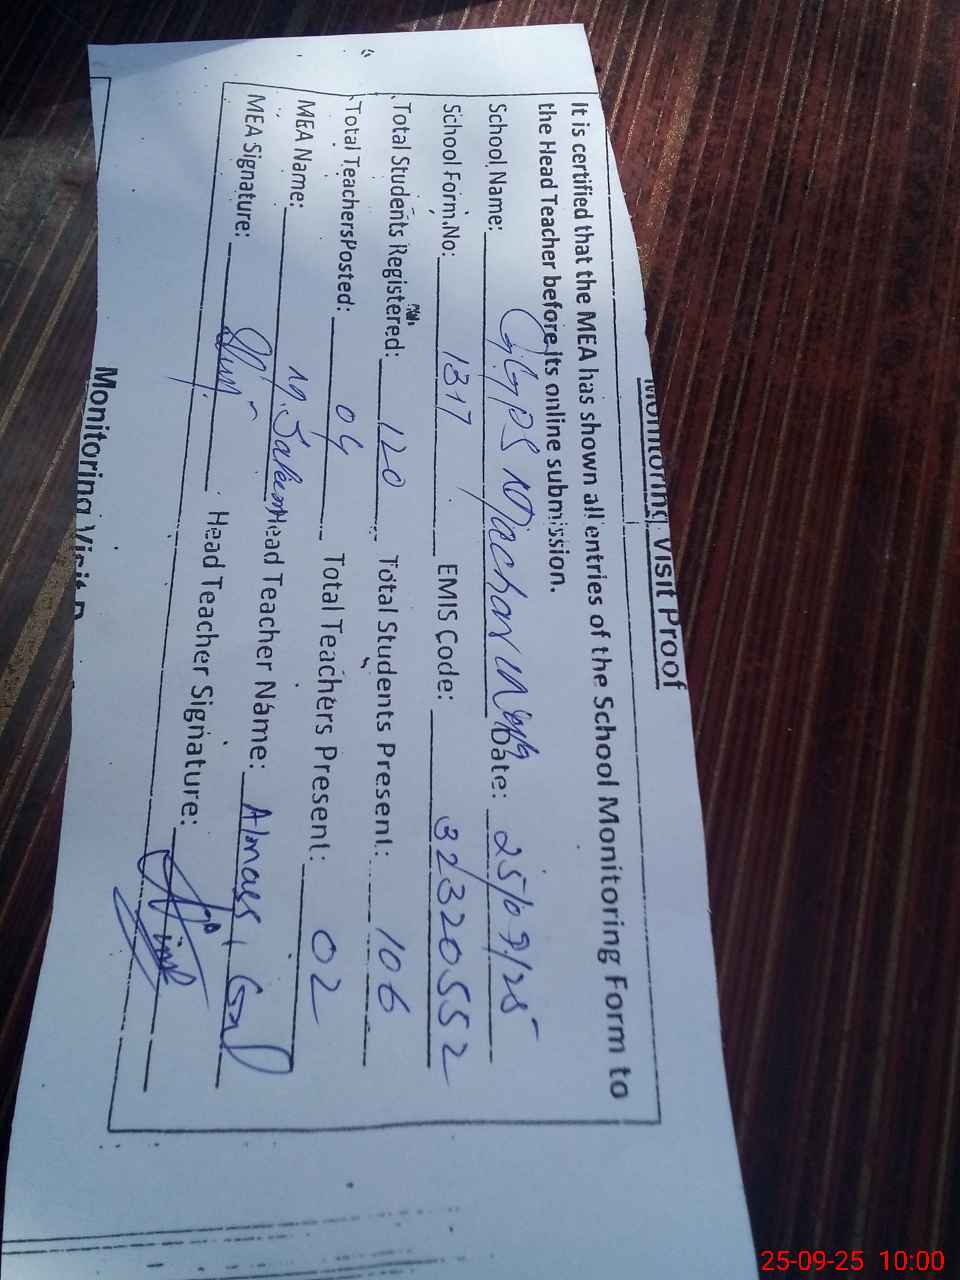 Monitoring Visit Proof
It is certified that the MEA has shown all entries of the School Monitoring Form to
the Head Teacher before its online submission.
School Name: GGPS Machar Date: 25/09/25
School Form No: 1317 EMIS Code: 32320552
Total Students Registered: 120 Total Students Present: 106
Total Teachers Posted: 04 Total Teachers Present: 02
MEA Name: M. Saleem Head Teacher Name: Almass Gul
MEA Signature: Head Teacher Signature:
Monitoring Visit
25-09-25 10:00